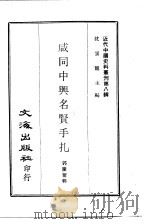 近代中國史料叢刊第八輯
沈雲龍主編
咸同中興名賢手札
郭慶蕃輯
文海出版社
印行